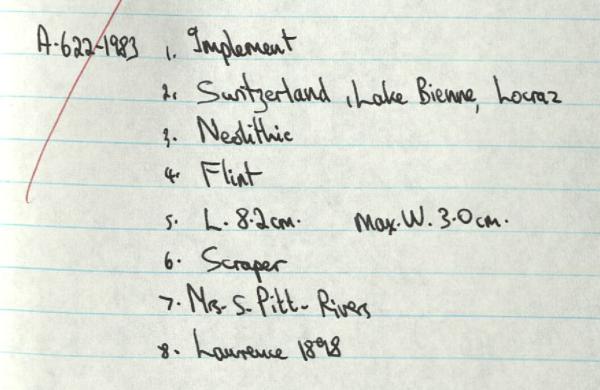 A.622-1983 1. Implement
2. Switzerland, Lake Bienne, Locraz
3. Neolithic
4. Flint
5. L. 8.2cm. Max. W. 3.0cm.
6. Scraper
7. Mrs. S. Pitt-Rivers
8. Lawrence 1898